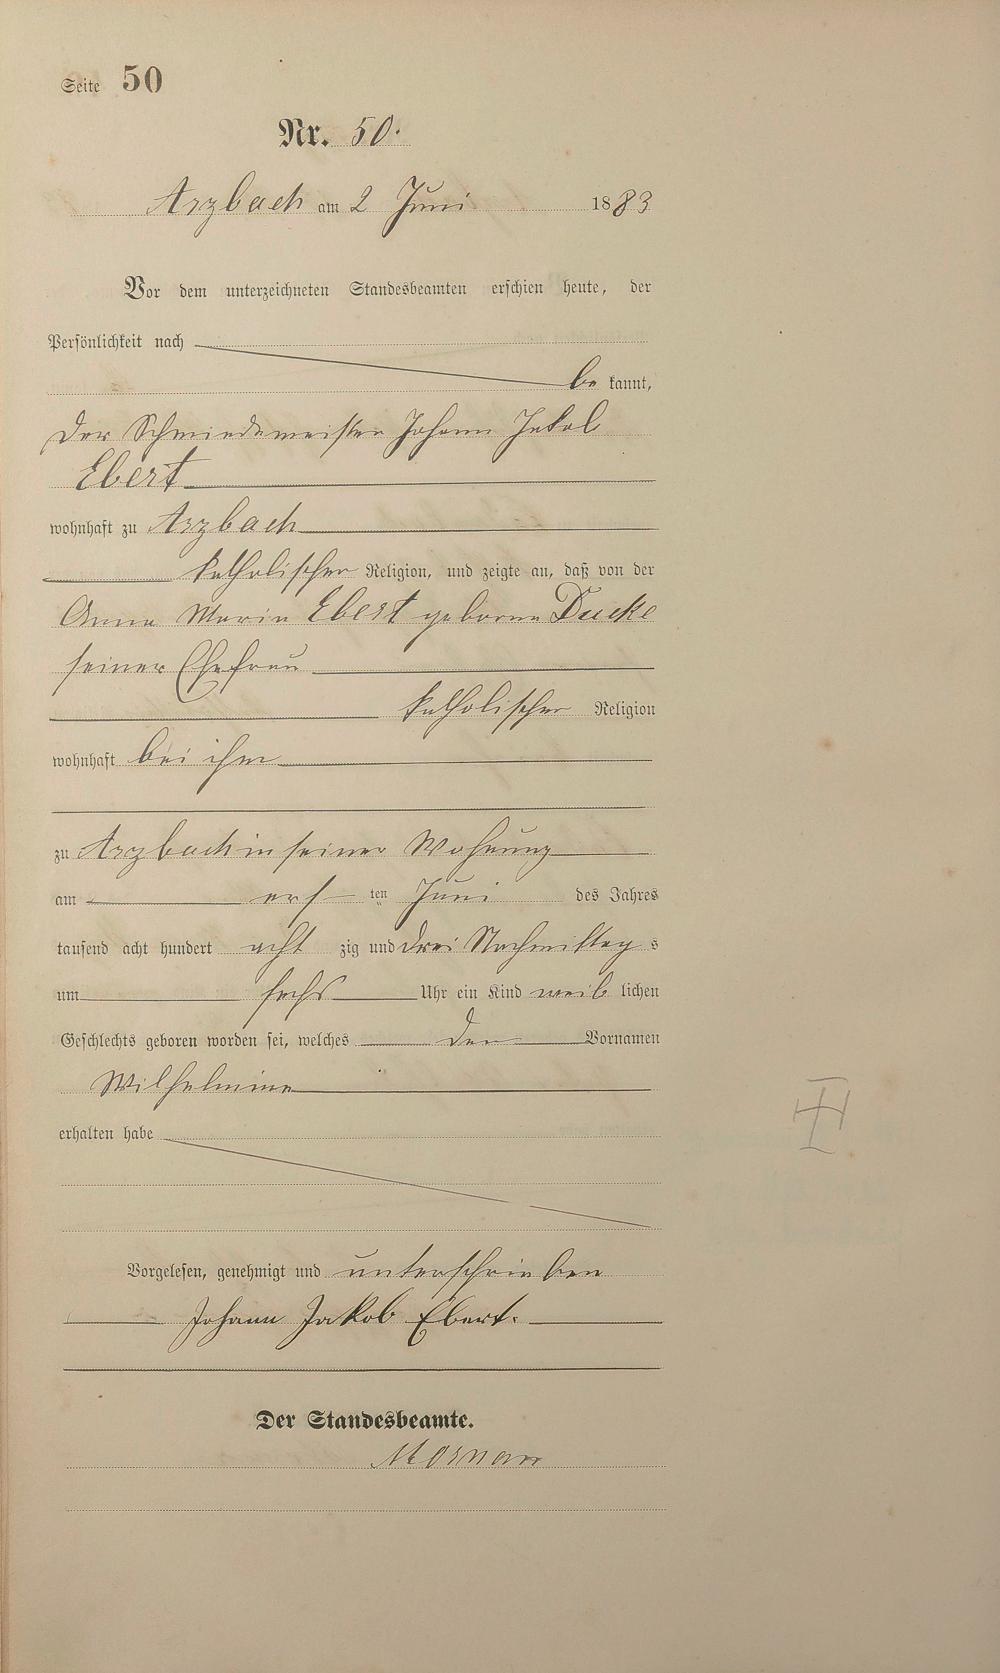 Seite 50
Nr. 50.
Arzbach am 2 Juni 1883
Vor dem unterzeichneten Standesbeamten erschien heute, der
Persönlichkeit nach
be kannt,
Der Schmiedemeister Johann Jakob
Ebert
wohnhaft zu Arzbach
katholischer Religion, und zeigte an, daß von der
Anna Maria Ebert geborene Ducke
seiner Ehefrau
katholischer Religion
wohnhaft bei ihm
zu Arzbach in seiner Wohnung
am ers ten Juni des Jahres
tausend acht hundert acht zig und drei Nachmittag s
um sechs Uhr ein Kind weib lichen
Geschlechts geboren worden sei, welches den Vornamen
Wilhelmine
erhalten habe
Vorgelesen, genehmigt und unterschrieben
Johann Jakob Ebert.
Der Standesbeamte.